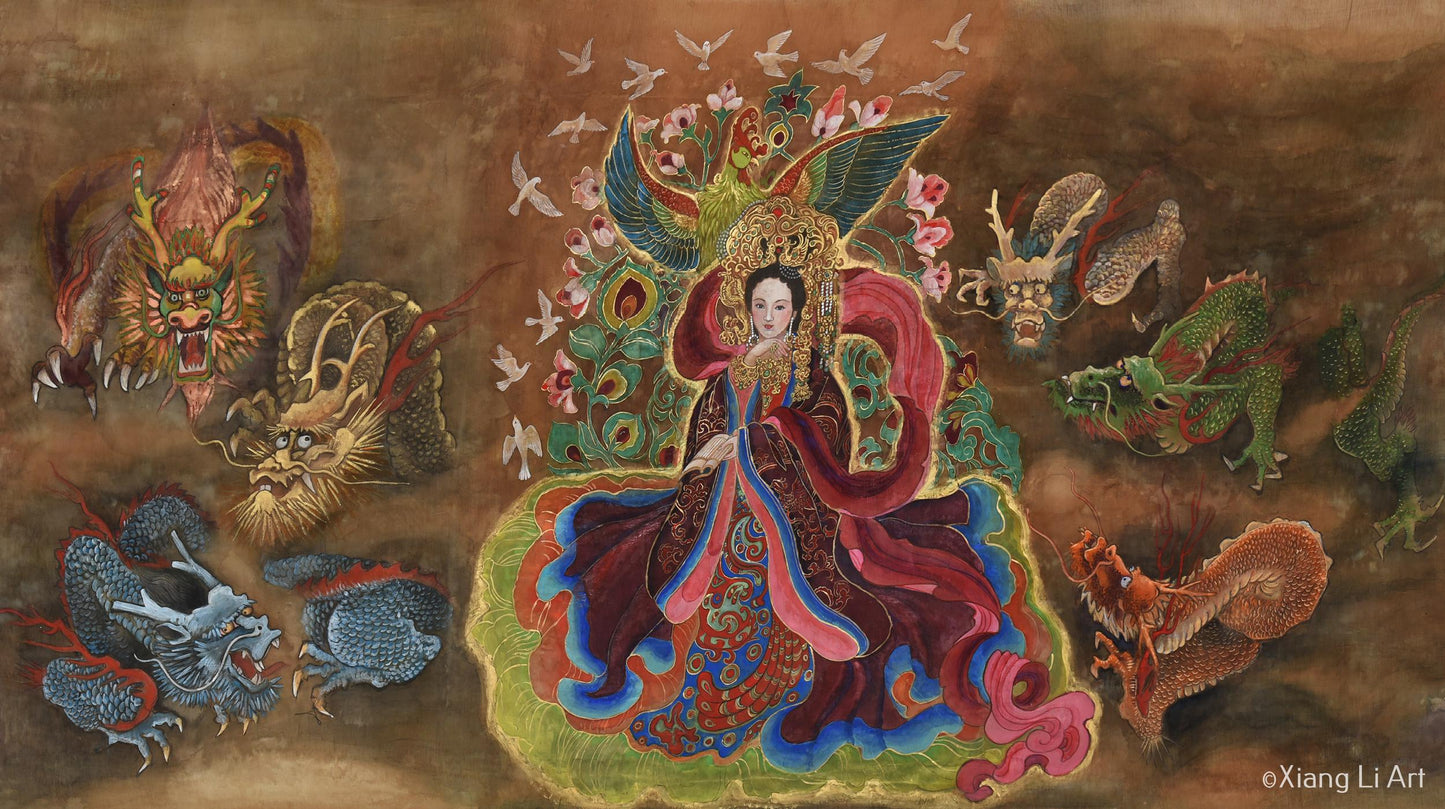 ©Xiang Li Art